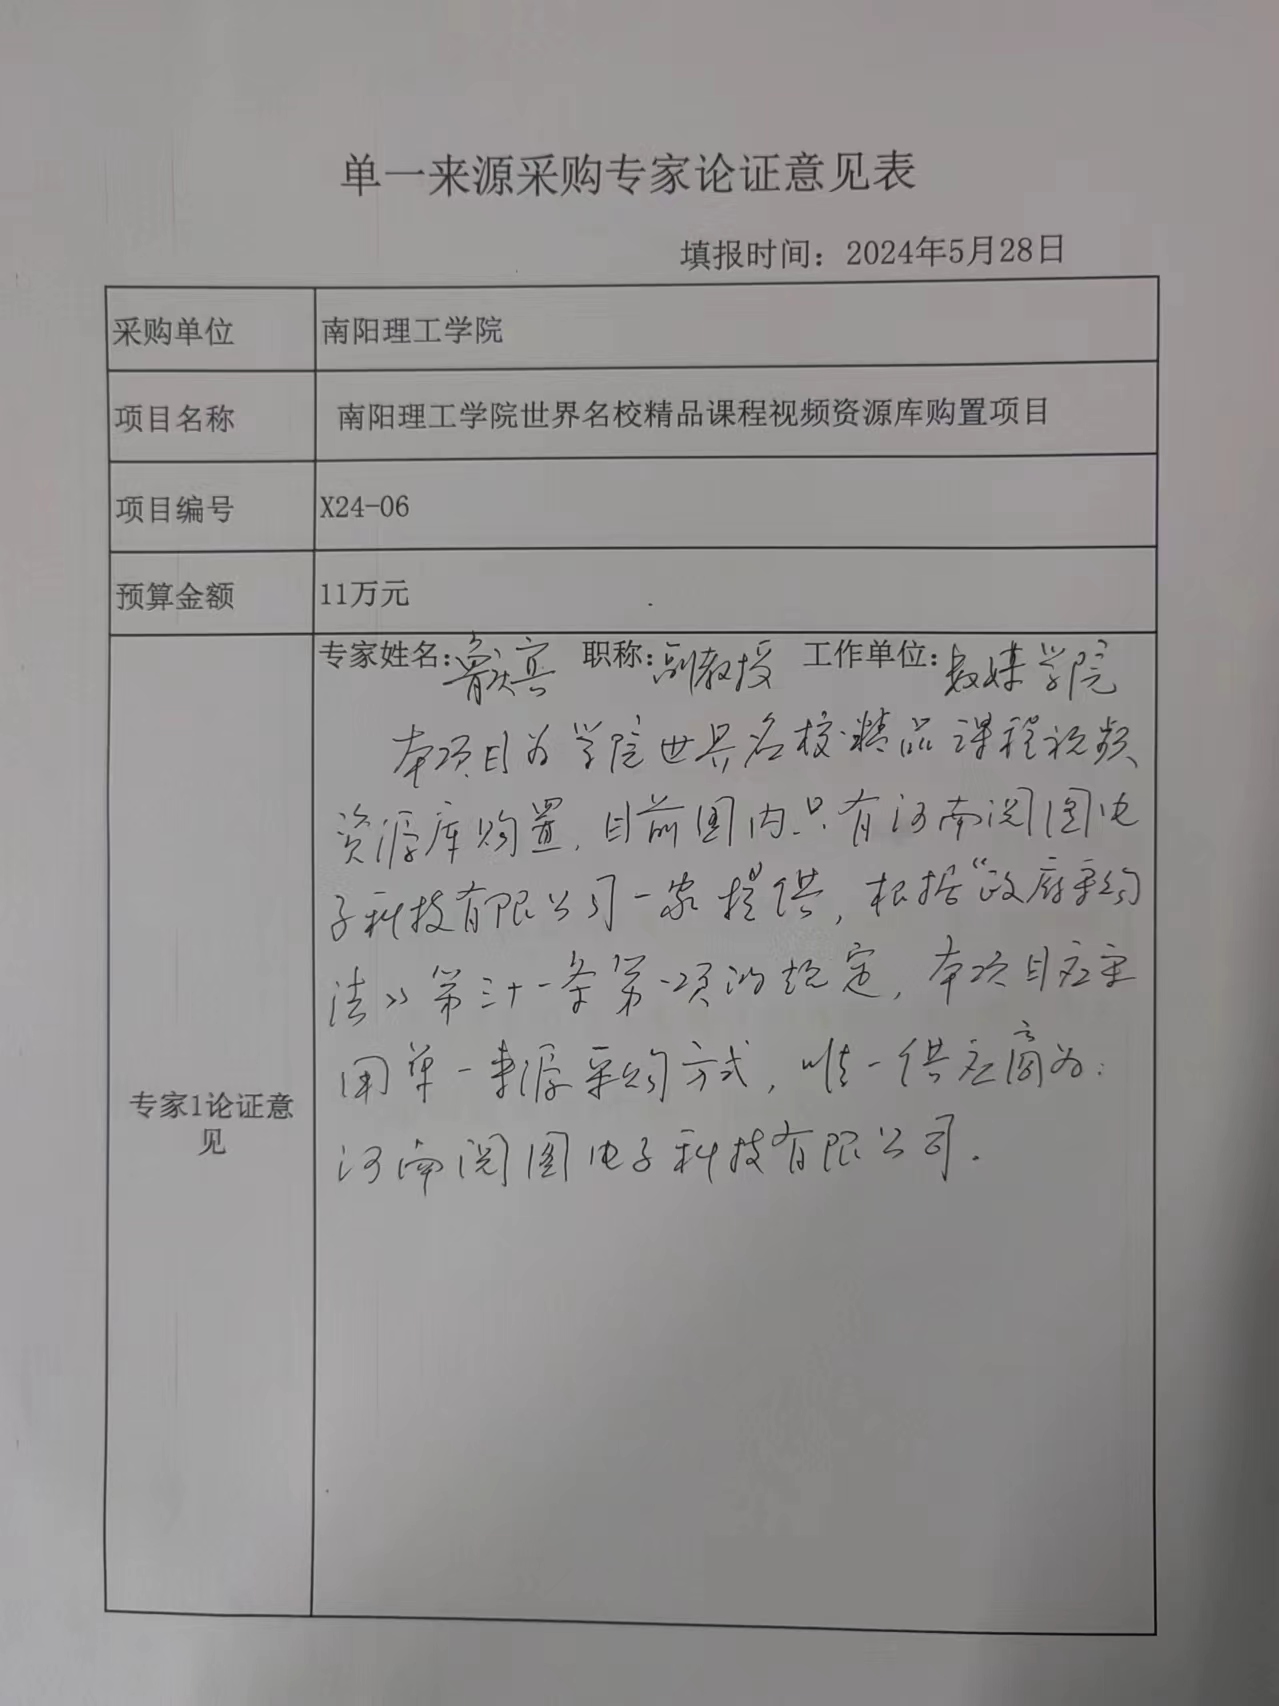 单一来源采购专家论证意见表
填报时间：2024年5月28日
采购单位 南阳理工学院
项目名称 南阳理工学院世界名校精品课程视频资源库购置项目
项目编号 X24-06
预算金额 11万元
专家姓名： 职称：副教授 工作单位：数媒学院
本项目为学院世界名校精品课程视频
资源库购置，目前国内只有河南阅图电
子科技有限公司一家提供，根据“政府采购
法》第三十一条第一项的规定，本项目应采
用单一来源采购方式，唯一供应商为：
河南阅图电子科技有限公司.
专家1论证意
见